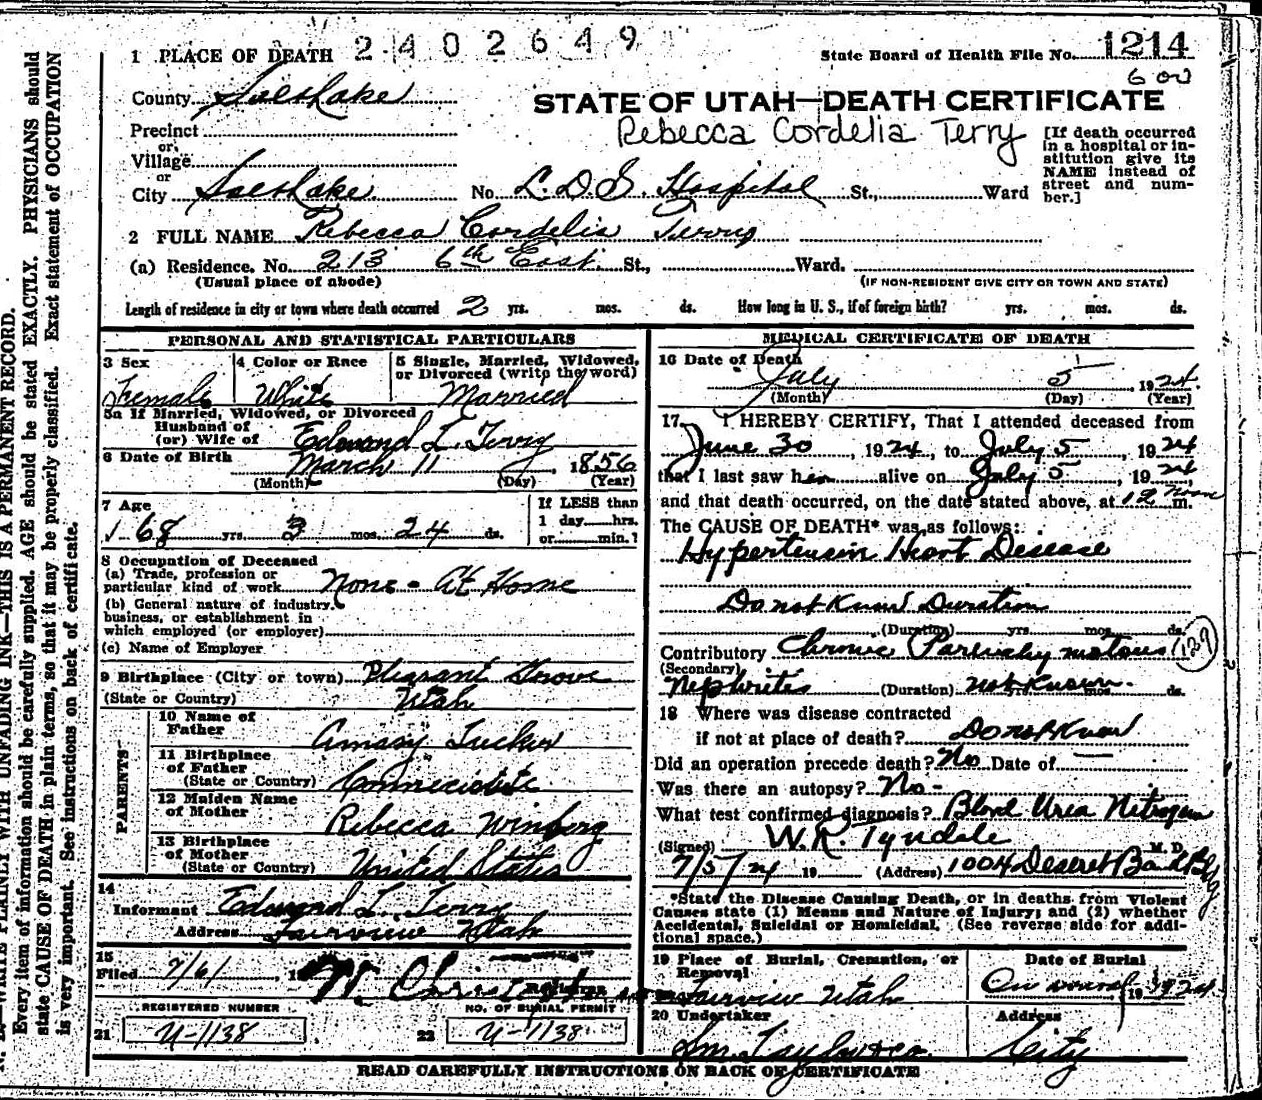 1 PLACE OF DEATH 2402649
State Board of Health File No. 1214
600
County Salt Lake
STATE OF UTAH—DEATH CERTIFICATE
Rebecca Cordelia Terry
Precinct
or
Village
or
City Salt Lake No. L. D. S. Hospital St., Ward
[If death occurred
in a hospital or in-
stitution give its
NAME instead of
street and num-
ber.]
2 FULL NAME Rebecca Cordelia Terry
(a) Residence. No. 213 6th East St., Ward.
(Usual place of abode) (IF NON-RESIDENT GIVE CITY OR TOWN AND STATE)
Length of residence in city or town where death occurred 2 yrs. mos. ds. How long in U. S., if of foreign birth? yrs. mos. ds.
PERSONAL AND STATISTICAL PARTICULARS
3 Sex 4 Color or Race 5 Single, Married, Widowed,
or Divorced (write the word)
Female White Married
5a If Married, Widowed, or Divorced
Husband of
(or) Wife of Edmond L. Terry
6 Date of Birth March 11, 1856
(Month) (Day) (Year)
7 Age If LESS than
1 day hrs.
68 yrs. 3 mos. 24 ds. or min.?
8 Occupation of Deceased
(a) Trade, profession or
particular kind of work None - At Home
(b) General nature of industry,
business, or establishment in
which employed (or employer)
(c) Name of Employer
9 Birthplace (City or town) Pleasant Grove
(State or Country) Utah
PARENTS
10 Name of
Father Amasy Tucker
11 Birthplace
of Father
(State or Country) Connecicute
12 Maiden Name
of Mother Rebecca Winberg
13 Birthplace
of Mother
(State or Country) United States
14
Informant Edmond L. Terry
Address Fairview Utah
15
Filed 7/6/, 19
Registrar
REGISTERED NUMBER NO. OF BURIAL PERMIT
21 U-1138 22 U-1138
MEDICAL CERTIFICATE OF DEATH
16 Date of Death
July 5, 1924
(Month) (Day) (Year)
17 I HEREBY CERTIFY, That I attended deceased from
June 30, 1924, to July 5, 1924
that I last saw her alive on July 5, 1924,
and that death occurred, on the date stated above, at 12 noon m.
The CAUSE OF DEATH* was as follows:
Hypertensin Heart Disease
Do not Know Duration
(Duration) yrs. mos. ds.
Contributory Chronic 129
(Secondary)
Nephrites (Duration) not known. mos. ds.
18 Where was disease contracted
if not at place of death? Do not Know
Did an operation precede death? No Date of —
Was there an autopsy? No -
What test confirmed diagnosis? Blood Urea Nitrogen
(Signed) W. R. Tyndale M. D.
7/5/24 19 (Address) 1004 Deseret Bank Bldg
*State the Disease Causing Death, or in deaths from Violent
Causes state (1) Means and Nature of Injury; and (2) whether
Accidental, Suicidal or Homicidal. (See reverse side for addi-
tional space.)
19 Place of Burial, Cremation, or
Removal
Fairview Utah
Date of Burial
1924
20 Undertaker Address
City
READ CAREFULLY INSTRUCTIONS ON BACK OF CERTIFICATE
WRITE PLAINLY WITH UNFADING INK—THIS IS A PERMANENT RECORD.
Every item of information should be carefully supplied. AGE should be stated EXACTLY. PHYSICIANS should
state CAUSE OF DEATH in plain terms, so that it may be properly classified. Exact statement of OCCUPATION
is very important. See instructions on back of certificate.